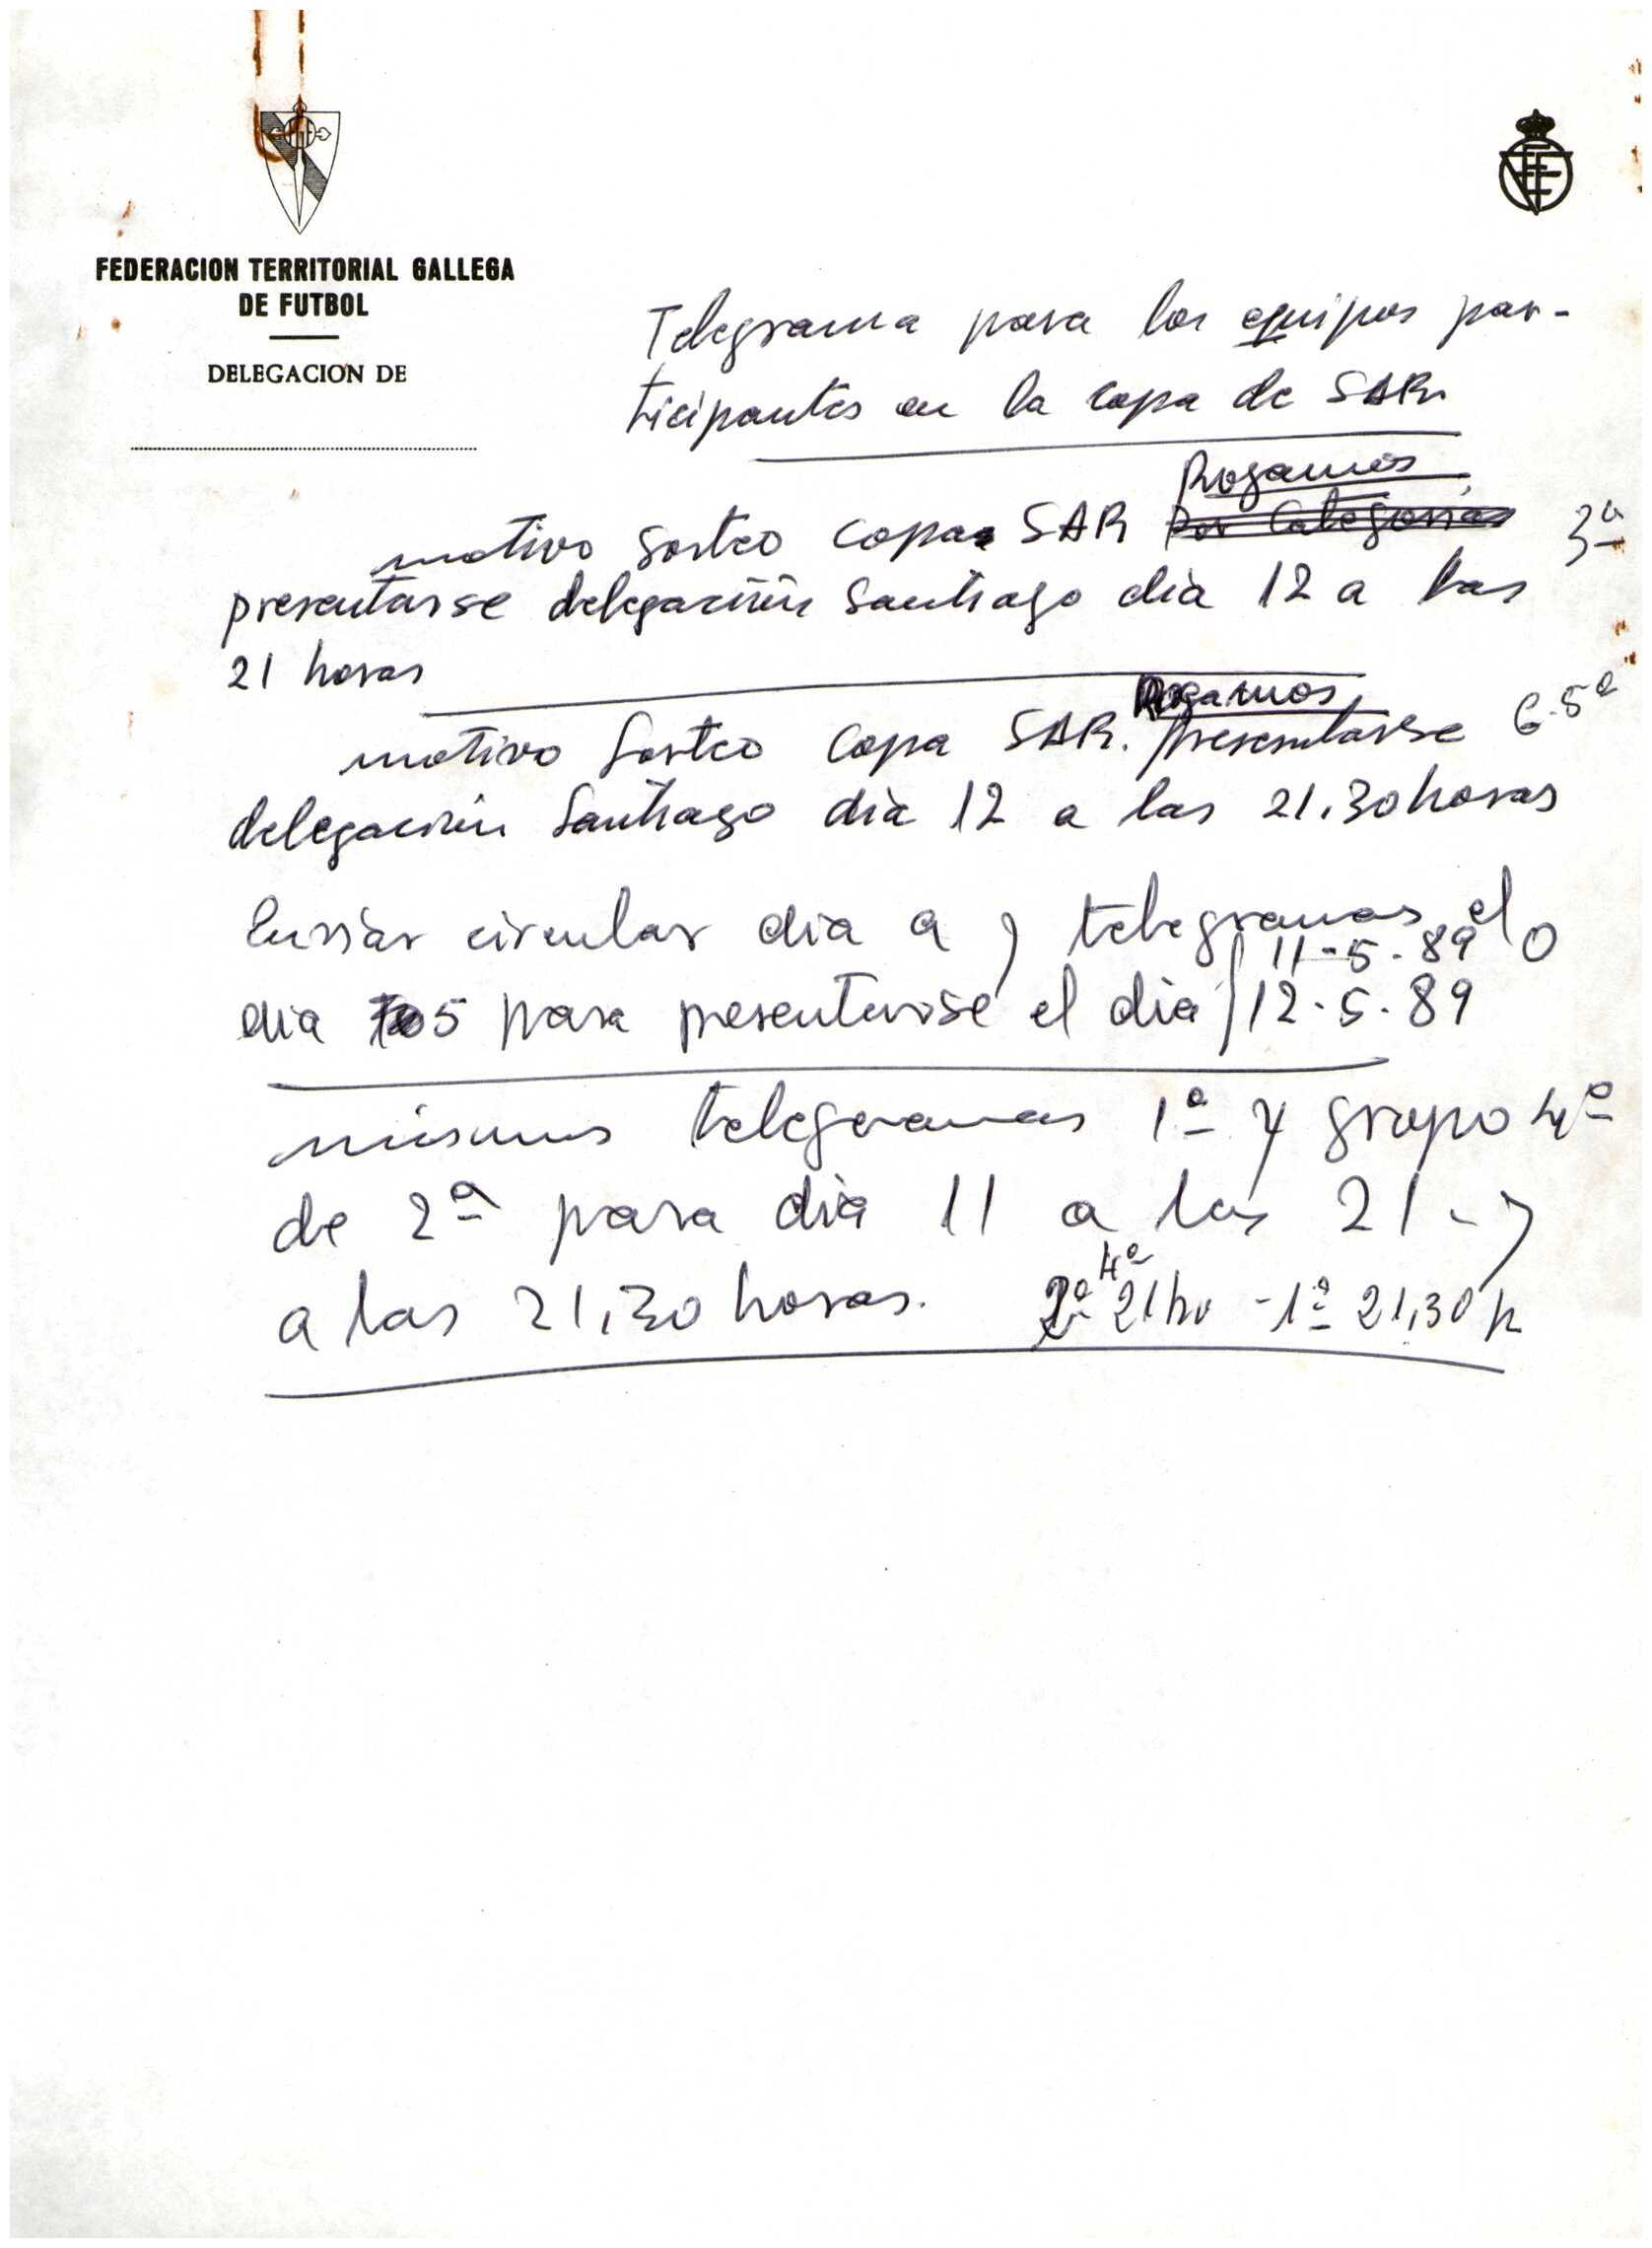 FEDERACION TERRITORIAL GALLEGA
DE FUTBOL
DELEGACION DE
Telegrama para los equipos par-
ticipantes en la copa de SAR.
Rogamos
motivo sorteo copa SAR por Categorias 3ª
presentarse delegación Santiago dia 12 a las
21 horas
Rogamos
motivo Sorteo Copa SAR. presentarse G-5ª
delegación Santiago dia 12 a las 21.30 horas
Enviar circular dia 9 y telegramas el
11-5-89 o
dia 5 para presentarse el dia 12-5-89
mismos telegramas 1ª y grupo 4º
de 2ª para dia 11 a las 21 - y
a las 21,30 horas. 2ª 4º 21 h - 1ª 21,30 h